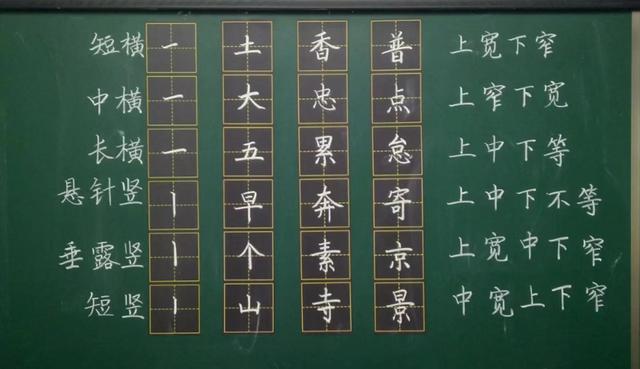 短横 一 土 香 普 上宽下窄
中横 一 大 忠 点 上窄下宽
长横 一 五 累 怠 上中下等
悬针竖 丨 早 奔 寄 上中下不等
垂露竖 丨 个 素 京 上宽中下窄
短竖 丨 山 寺 景 中宽上下窄